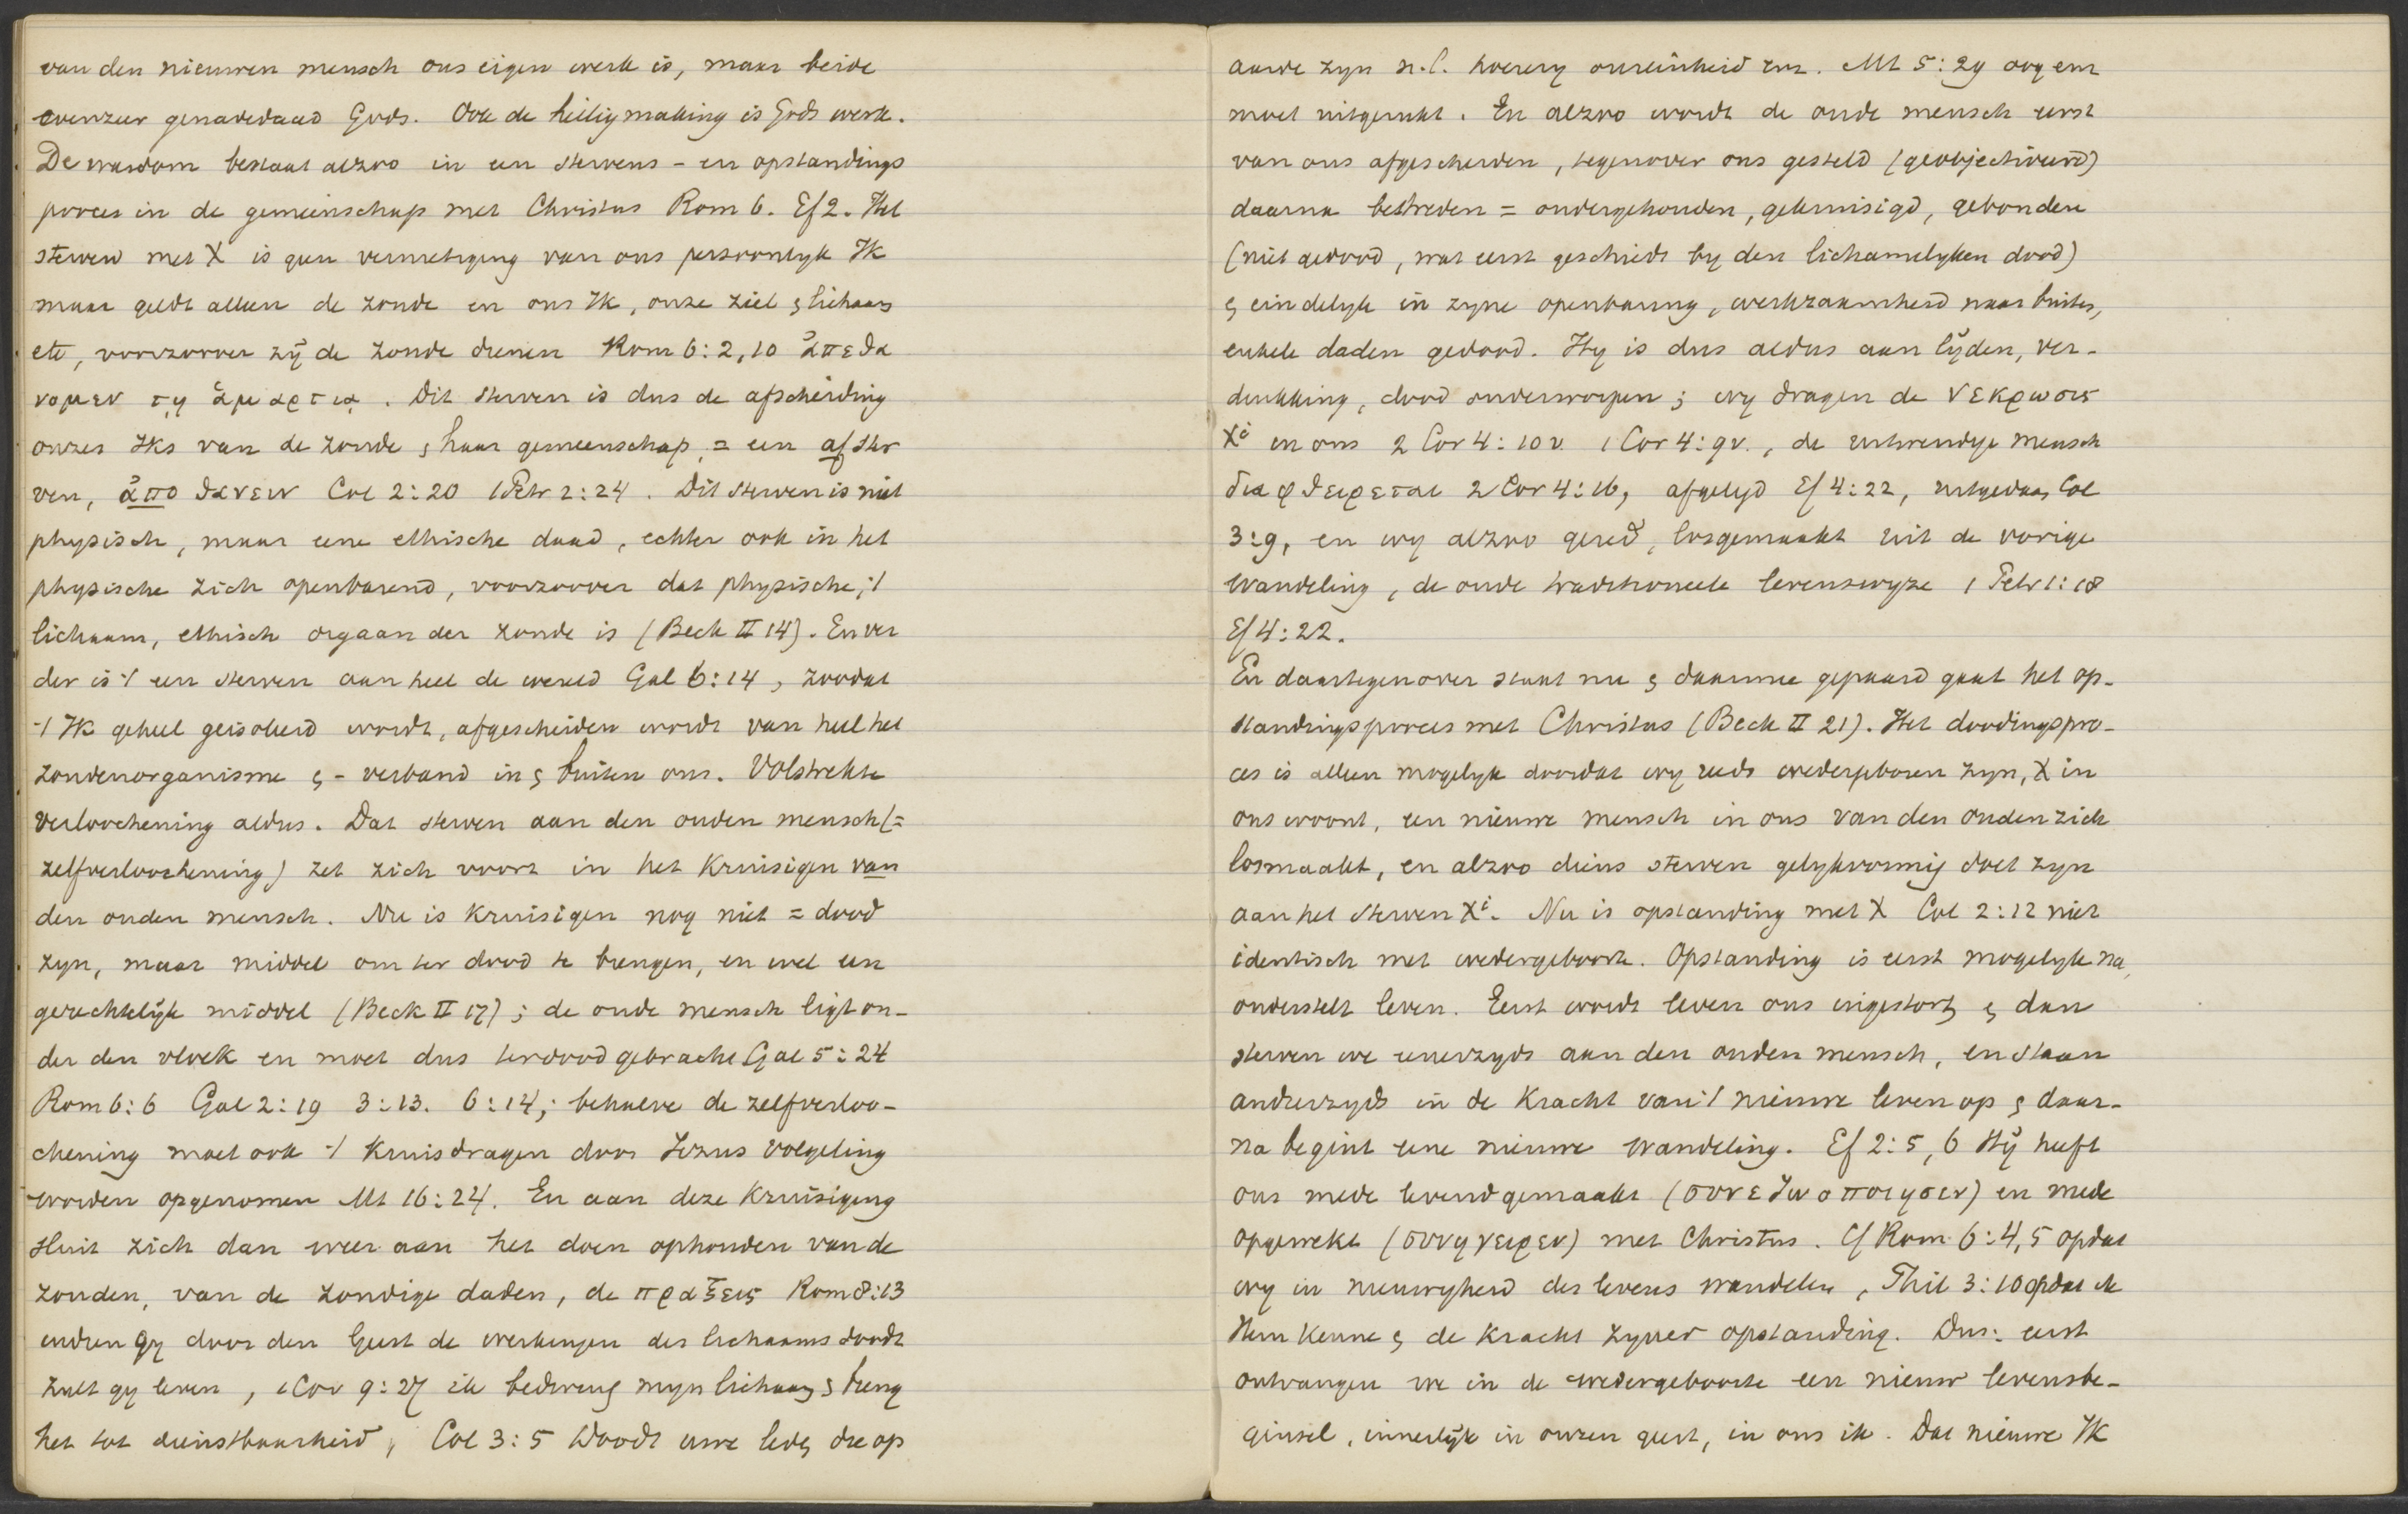 van den nieuwen mensch ons eigen werk is, maar beide
evenzeer genadedaad Gods. Ook de heiligmaking is Gods werk.
De wasdom bestaat alzoo in een stervens - en opstandings
proces in de gemeenschap met Christus Rom 6. Ef 2. Het
sterven met X is geen vernietiging van ons persoonlyk Ik
maar geldt alleen de zonde en ons Ik, onze ziel ς lichaam
etc, voorzoover zij de zonde dienen Rom 6:2,10 ἀπεθα
νομεν τῃ ἁμαρτιᾳ. Dit sterven is dus de afscheiding
onzes Iks van de zonde ς haar gemeenschap, = een afster
ven, ἀπο θανειν Col 2:20 1 Petr 2:24. Dit sterven is niet
physisch, maar eene ethische daad, echter ook in het
physische zich openbarend, voorzoover dat physische, 't
lichaam, ethisch orgaan der zonde is (Beck II 14). En ver
der is 't een sterven aan heel de wereld Gal 6:14, zoodat
't Ik geheel geisoleerd wordt, afgescheiden wordt van heel het
zondenorganisme ς - verband in ς buiten ons. Volstrekte
verloochening aldus. Dat sterven aan den ouden mensch (=
zelfverloochening) zet zich voort in het kruisigen van
den ouden mensch. Nu is kruisigen nog niet = dood
zyn, maar middel om ter dood te brengen, en wel een
gerechtelijk middel (Beck II 17); de oude mensch ligt on-
der den vloek en moet dus ter dood gebracht Gal 5:24
Rom 6:6 Gal 2:19 3:13. 6:14; behalve de zelfverloo-
chening moet ook 't kruisdragen door Jezus volgeling
worden opgenomen Mt 16:24. En aan deze kruisiging
sluit zich dan weer aan het doen ophouden van de
zonden, van de zondige daden, de πραξεις Rom 8:13
indien gy door den Geest de werkingen des lichaams doodt
zult gy leven, 1 Cor 9:27 ik bedwing myn lichaam ς breng
het tot dienstbaarheid, Col 3:5 Doodt uwe leden die op
aarde zyn n.l. hoerery onreinheid enz. Mt 5:29 oog enz
moet uitgerukt. En alzoo wordt de oude mensch eerst
van ons afgescheiden, tegenover ons gesteld (geobjectiveerd)
daarna bestreden = ondergehouden, gekruisigd, gebonden
(niet gedood, wat eerst geschiedt by den lichamelyken dood)
ς eindelyk in zyne openbaring, werkzaamheid naar buiten,
enkele daden gedood. Hy is dus aldus aan lijden, ver-
drukking, dood onderworpen; wy dragen de νεκρωσις
Xi in ons 2 Cor 4:10 v. 1 Cor 4:9 v., de uitwendige mensch
διαφθειρεται 2 Cor 4:16, afgelegd Ef 4:22, uitgedaan Col
3:9, en wy alzoo gered, losgemaakt uit de vorige
wandeling, de oude traditioneele levenswyze 1 Petr 1:18
Ef 4:22.
En daartegenover staat nu ς daarmee gepaard gaat het op-
standingsproces met Christus (Beck II 21). Het doodingspro-
ces is alleen mogelyk doordat wy reeds wedergeboren zyn, X in
ons woont, een nieuwe mensch in ons van den ouden zich
losmaakt, en alzoo diens sterven gelykvormig doet zyn
aan het sterven Xi. Nu is opstanding met X Col 2:12 niet
identisch met wedergeboorte. Opstanding is eerst mogelyk na,
onderstelt leven. Eerst wordt leven ons ingestort ς dan
sterven we eenerzyds aan den ouden mensch, en staan
anderzyds in de kracht van 't nieuwe leven op ς daar-
na begint eene nieuwe wandeling. Ef 2:5, 6 Hij heeft
ons mede levendgemaakt (συνεζωοποιησεν) en mede
opgewekt (συνηγειρεν) met Christus. Cf Rom 6:4,5 opdat
wy in nieuwigheid des levens wandelen, Phil 3:10 opdat ik
Hem kenne ς de kracht zyner opstanding. Dus: eerst
ontvangen we in de wedergeboorte een nieuw levensbe-
ginsel, innerlijk in onzen geest, in ons ik. Dat nieuwe Ik